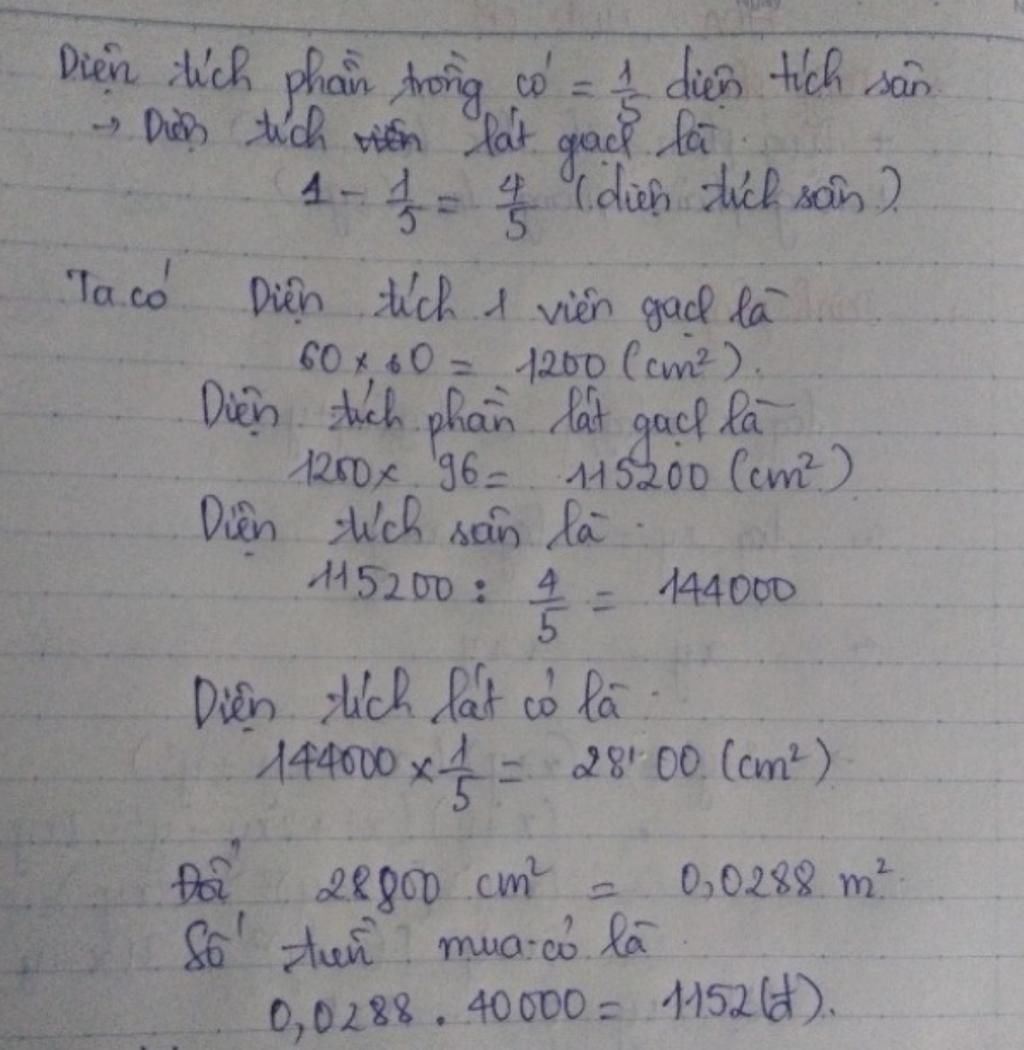 Diện tích phần trồng cỏ = 1/5 diện tích sân
→ Diện tích viên lát gạch là
1 - 1/5 = 4/5 (diện tích sân)
Ta có Diện tích 1 viên gạch là
60 x 60 = 1200 (cm²).
Diện tích phần lát gạch là
1200 x 96 = 115200 (cm²)
Diện tích sân là
115200 : 4/5 = 144000
Diện tích lát cỏ là
144000 x 1/5 = 28 00 (cm²)
Đổi 28800 cm² = 0,0288 m²
Số tiền mua cỏ là
0,0288 . 40000 = 1152 (đ).